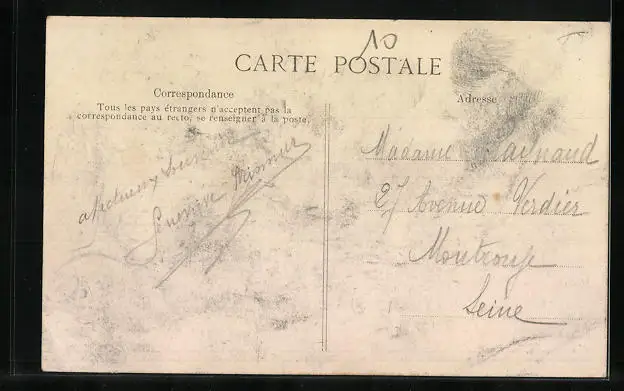 10
CARTE POSTALE
Correspondance
Tous les pays étrangers n'acceptent pas la
correspondance au recto, se renseigner à la poste.
Adresse
affectueux souvenir
Madame
27 Avenue Verdier
Montrouge
Seine